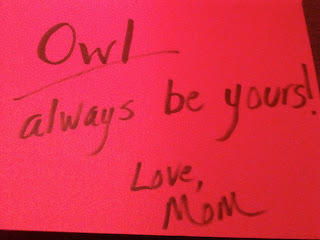 Owl
always be yours!
Love,
Mom